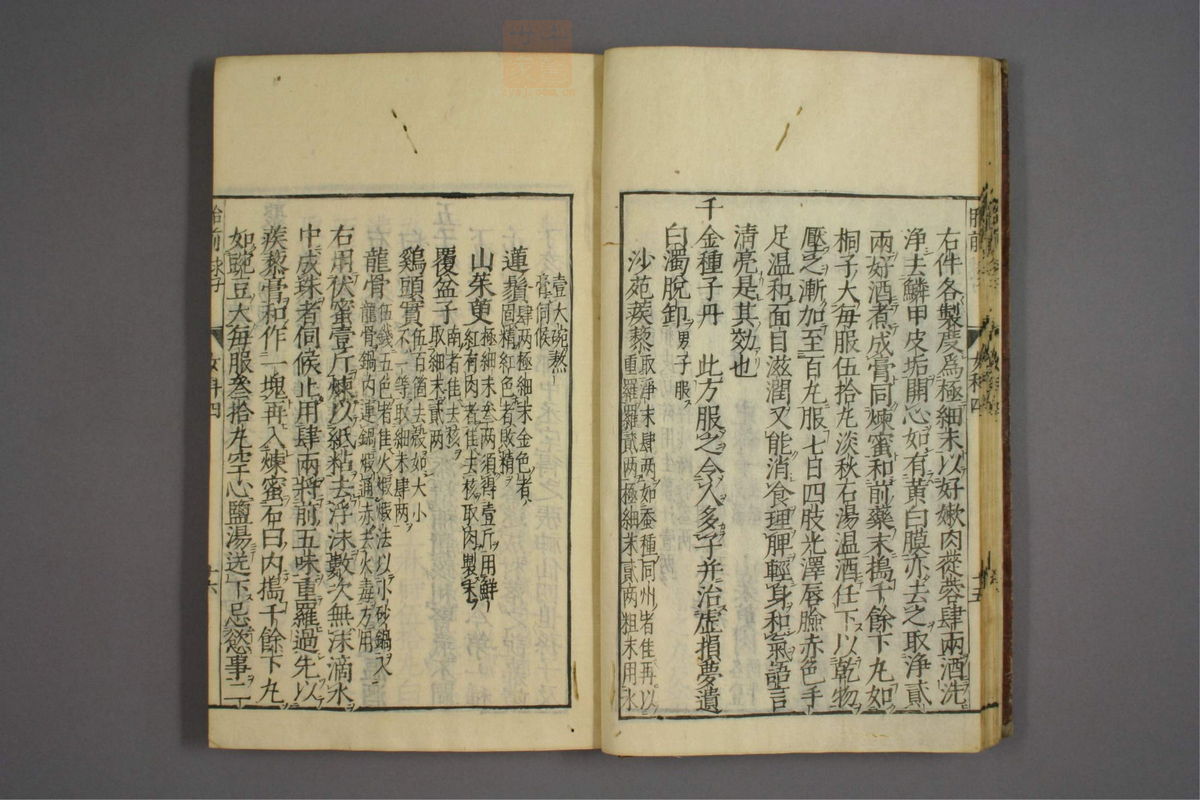 右件各製度爲極細末以好嫩肉蓯蓉肆兩酒洗
浄去鱗甲皮垢開心如有黄白膜亦去之取浄貳
兩好酒煮成膏同煉蜜和前藥末搗千餘下丸如
桐子大每服伍拾丸淡秋石湯温酒任下以乾物
壓之漸加至百丸服七日四肢光澤唇臉赤色手
足温和面目滋潤又能消食理脾輕身和氣語言
清亮是其効也
千金種子丹 此方服之令人多子并治虚損夢遺
白濁脫卸男子服
沙苑蒺藜取淨末肆兩如蚕種同州者佳再以
重羅羅貳兩極細末貳兩粗末用水
壹大碗熬
膏伺候
蓮鬚肆兩極細末金色者
固精紅色者敗精
山茱萸極細末叁兩須得壹斤用鮮
紅有肉者佳去核取肉製末
覆盆子南者佳去核
取細末貳兩
鷄頭實伍百箇去殼如大小
不一等取細末肆兩
龍骨伍錢五色者佳火煅煅法以小砂鍋又
龍骨鍋内連鍋煅通赤去火毒方用
右用伏蜜壹斤煉以紙粘去浮沫數次無沫滴水
中成珠者伺候止用肆兩將前五味重羅過先以
蒺藜膏和作一塊再入煉蜜石臼内搗千餘下丸
如豌豆大每服叁拾丸空心鹽湯送下忌慾事二十
女科四
十五
女科四
十六